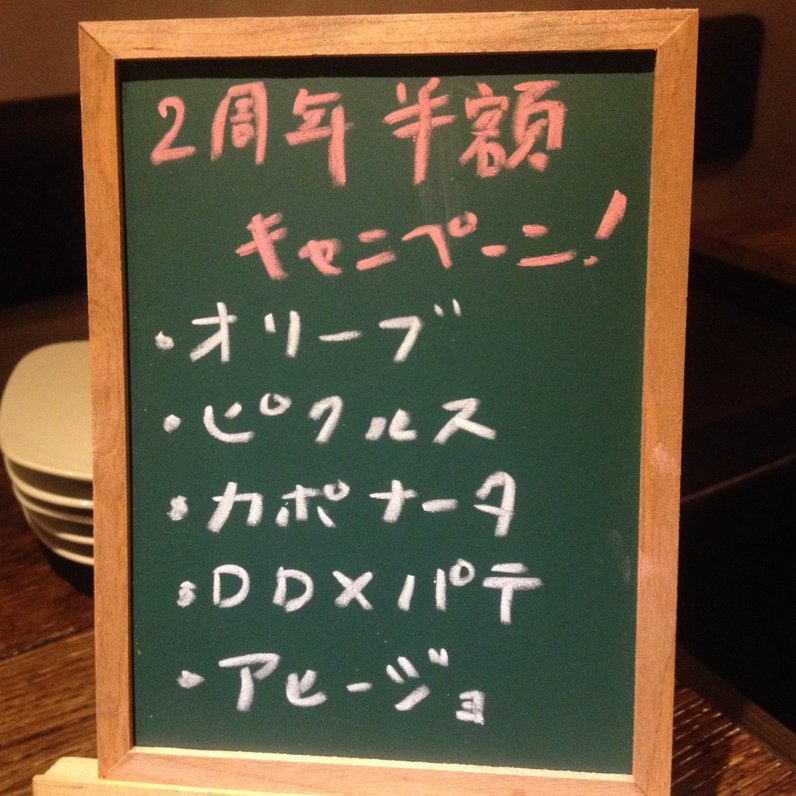 2周年 半額
キャンペーン!
・オリーブ
・ピクルス
・カポナータ
・DDXパテ
・アヒージョ